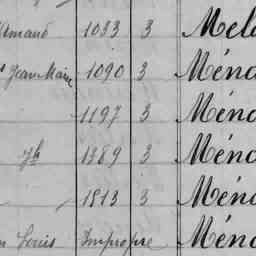 Armand 1033 3 Mel
Jean Marie 1090 3 Ména
1197 3 Ména
Jh 1389 3 Ména
1813 3 Ména
Louis Impropre Ména